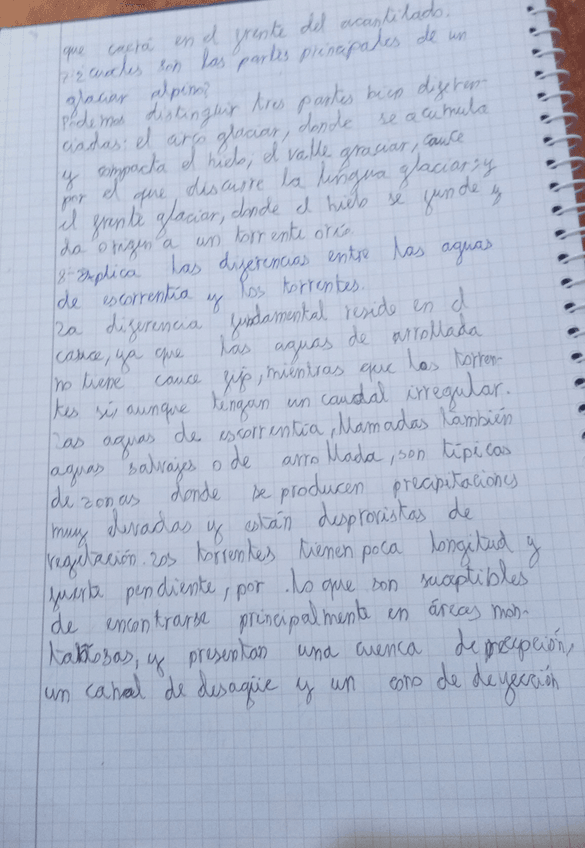 que caerá en el frente del acantilado.
7-¿cuales son las partes principales de un
glaciar alpino?
Podemos distinguir tres partes bien diferen-
ciadas: el circo glaciar, donde se acumula
y compacta el hielo; el valle graciar, cauce
por el que discurre la lengua glaciar; y
el frente glaciar, donde el hielo se funde y
da origen a un torrente o río.
8-Explica las diferencias entre las aguas
de escorrentía y los torrentes.
La diferencia fundamental reside en el
cauce, ya que las aguas de arrollada
no tiene cauce fijo, mientras que los torren-
tes sí, aunque tengan un caudal irregular.
Las aguas de escorrentia, llamadas también
aguas salvajes o de arrollada, son típicas
de zonas donde se producen precipitaciones
muy elevadas y están desprovistas de
vegetación. Los torrentes tienen poca longitud y
fuerte pendiente, por lo que son suceptibles
de encontrarse principalmente en áreas mon-
tañosas, y presentan una cuenca de recepción,
un canal de desagüe y un cono de deyección